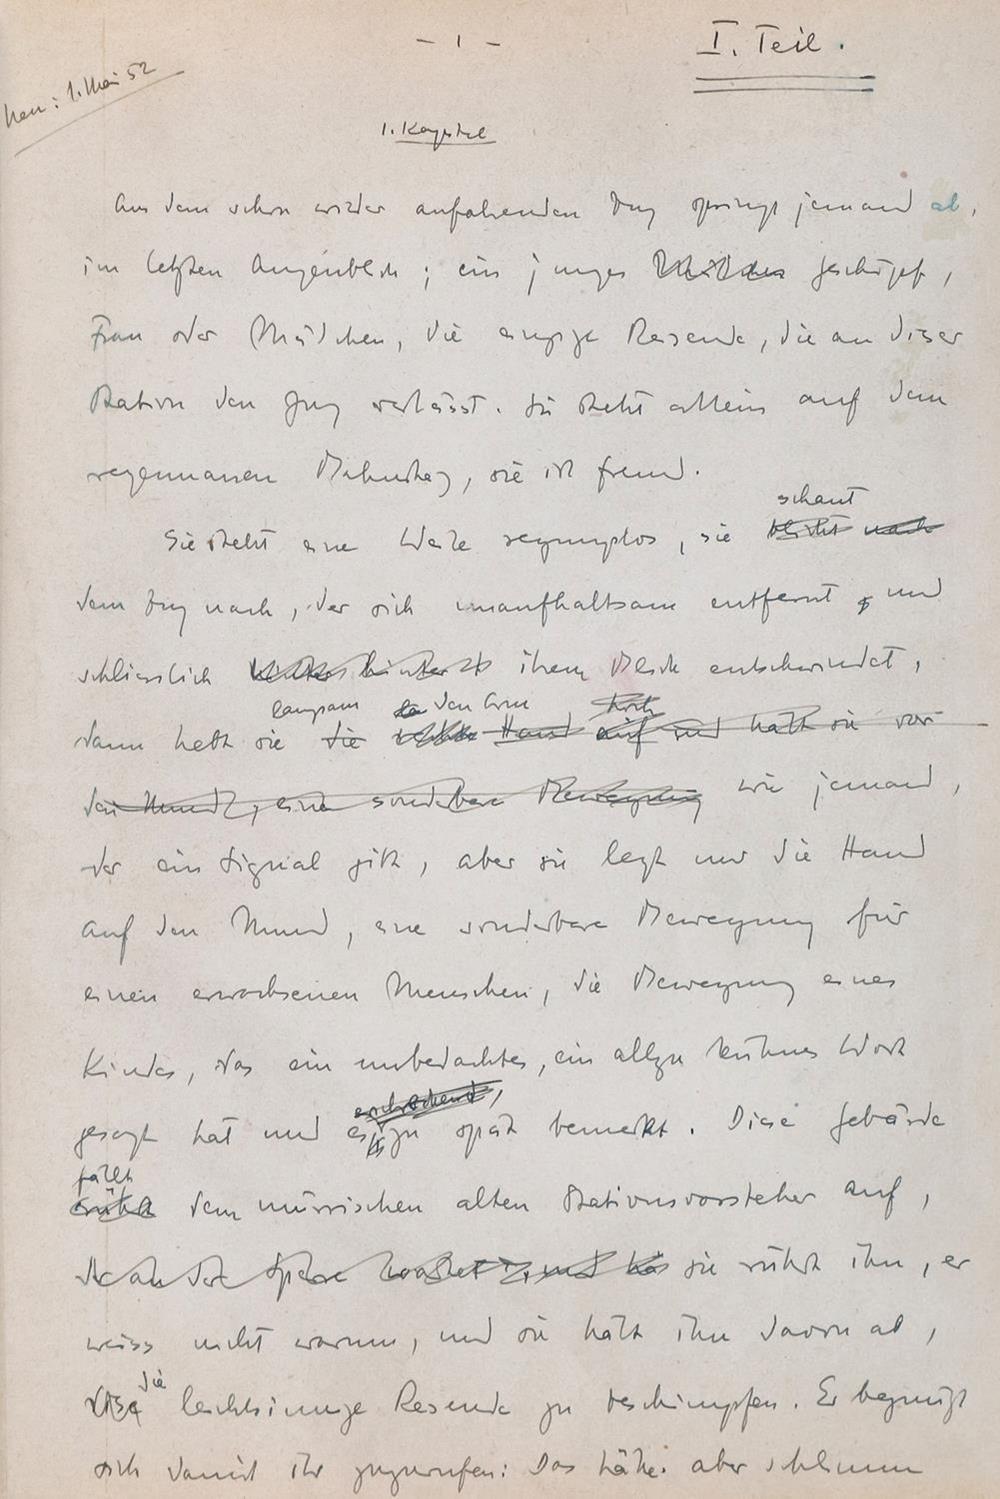 - 1 -
I. Teil.
neu: 1. Mai 52
1. Kapitel
Aus dem schon wieder anfahrenden Zug springt jemand ab,
im letzten Augenblick; ein junges Geschöpf,
Frau oder Mädchen, die einzige Reisende, die an dieser
Station den Zug verlässt. Sie steht allein auf dem
regennassen Bahnsteig, sie ist fremd.
schaut
Sie steht eine Weile regungslos, sie blickt nach
dem Zug nach, der sich unaufhaltsam entfernt und
schliesslich hinter ihrem Blick entschwindet,
langsam den Arm hoch
dann hebt sie die rechte Hand auf und hält sie vor
den Mund, eine sonderbare Bewegung wie jemand,
der ein Signal gibt, aber sie legt nur die Hand
auf den Mund, eine sonderbare Bewegung für
einen erwachsenen Menschen, die Bewegung eines
Kindes, das ein unbedachtes, ein allzu kühnes Wort
erschreckend,
gesagt hat und es zu spät bemerkt. Diese Gebärde
fällt
rührt dem mürrischen alten Stationsvorsteher auf,
der an der Sperre wartet, und sie rührt ihn, er
weiss nicht warum, und sie hält ihn davon ab,
die
diese leichtsinnige Reisende zu beschimpfen. Er begnügt
sich damit ihr zuzurufen: Das hätte aber schlimm